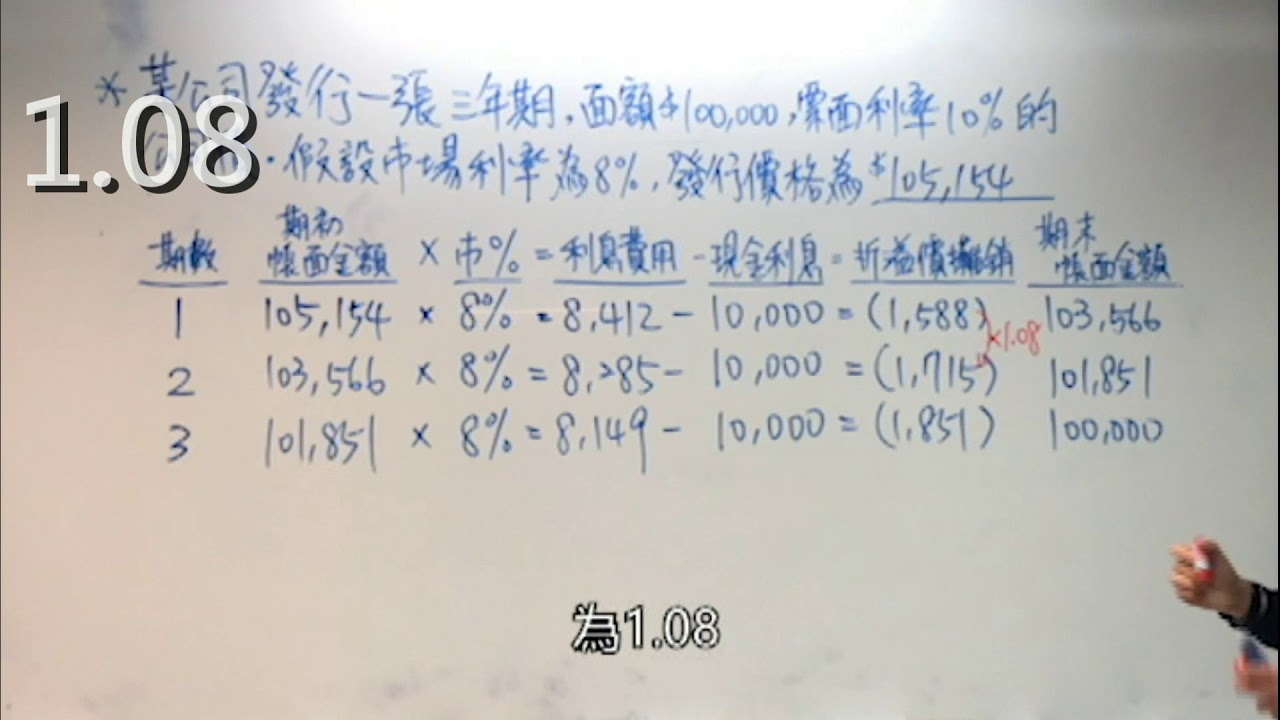 1.08
* 某公司發行一張三年期,面額$100,000,票面利率10%的
公司 . 假設市場利率為8%,發行價格為$105,154
期數 期初帳面金額 × 市% = 利息費用 - 現金利息 = 折溢價攤銷 期末帳面金額
1 105,154 × 8% = 8,412 - 10,000 = (1,588) 103,566
×1.08
2 103,566 × 8% = 8,285 - 10,000 = (1,715) 101,851
3 101,851 × 8% = 8,149 - 10,000 = (1,851) 100,000
為1.08